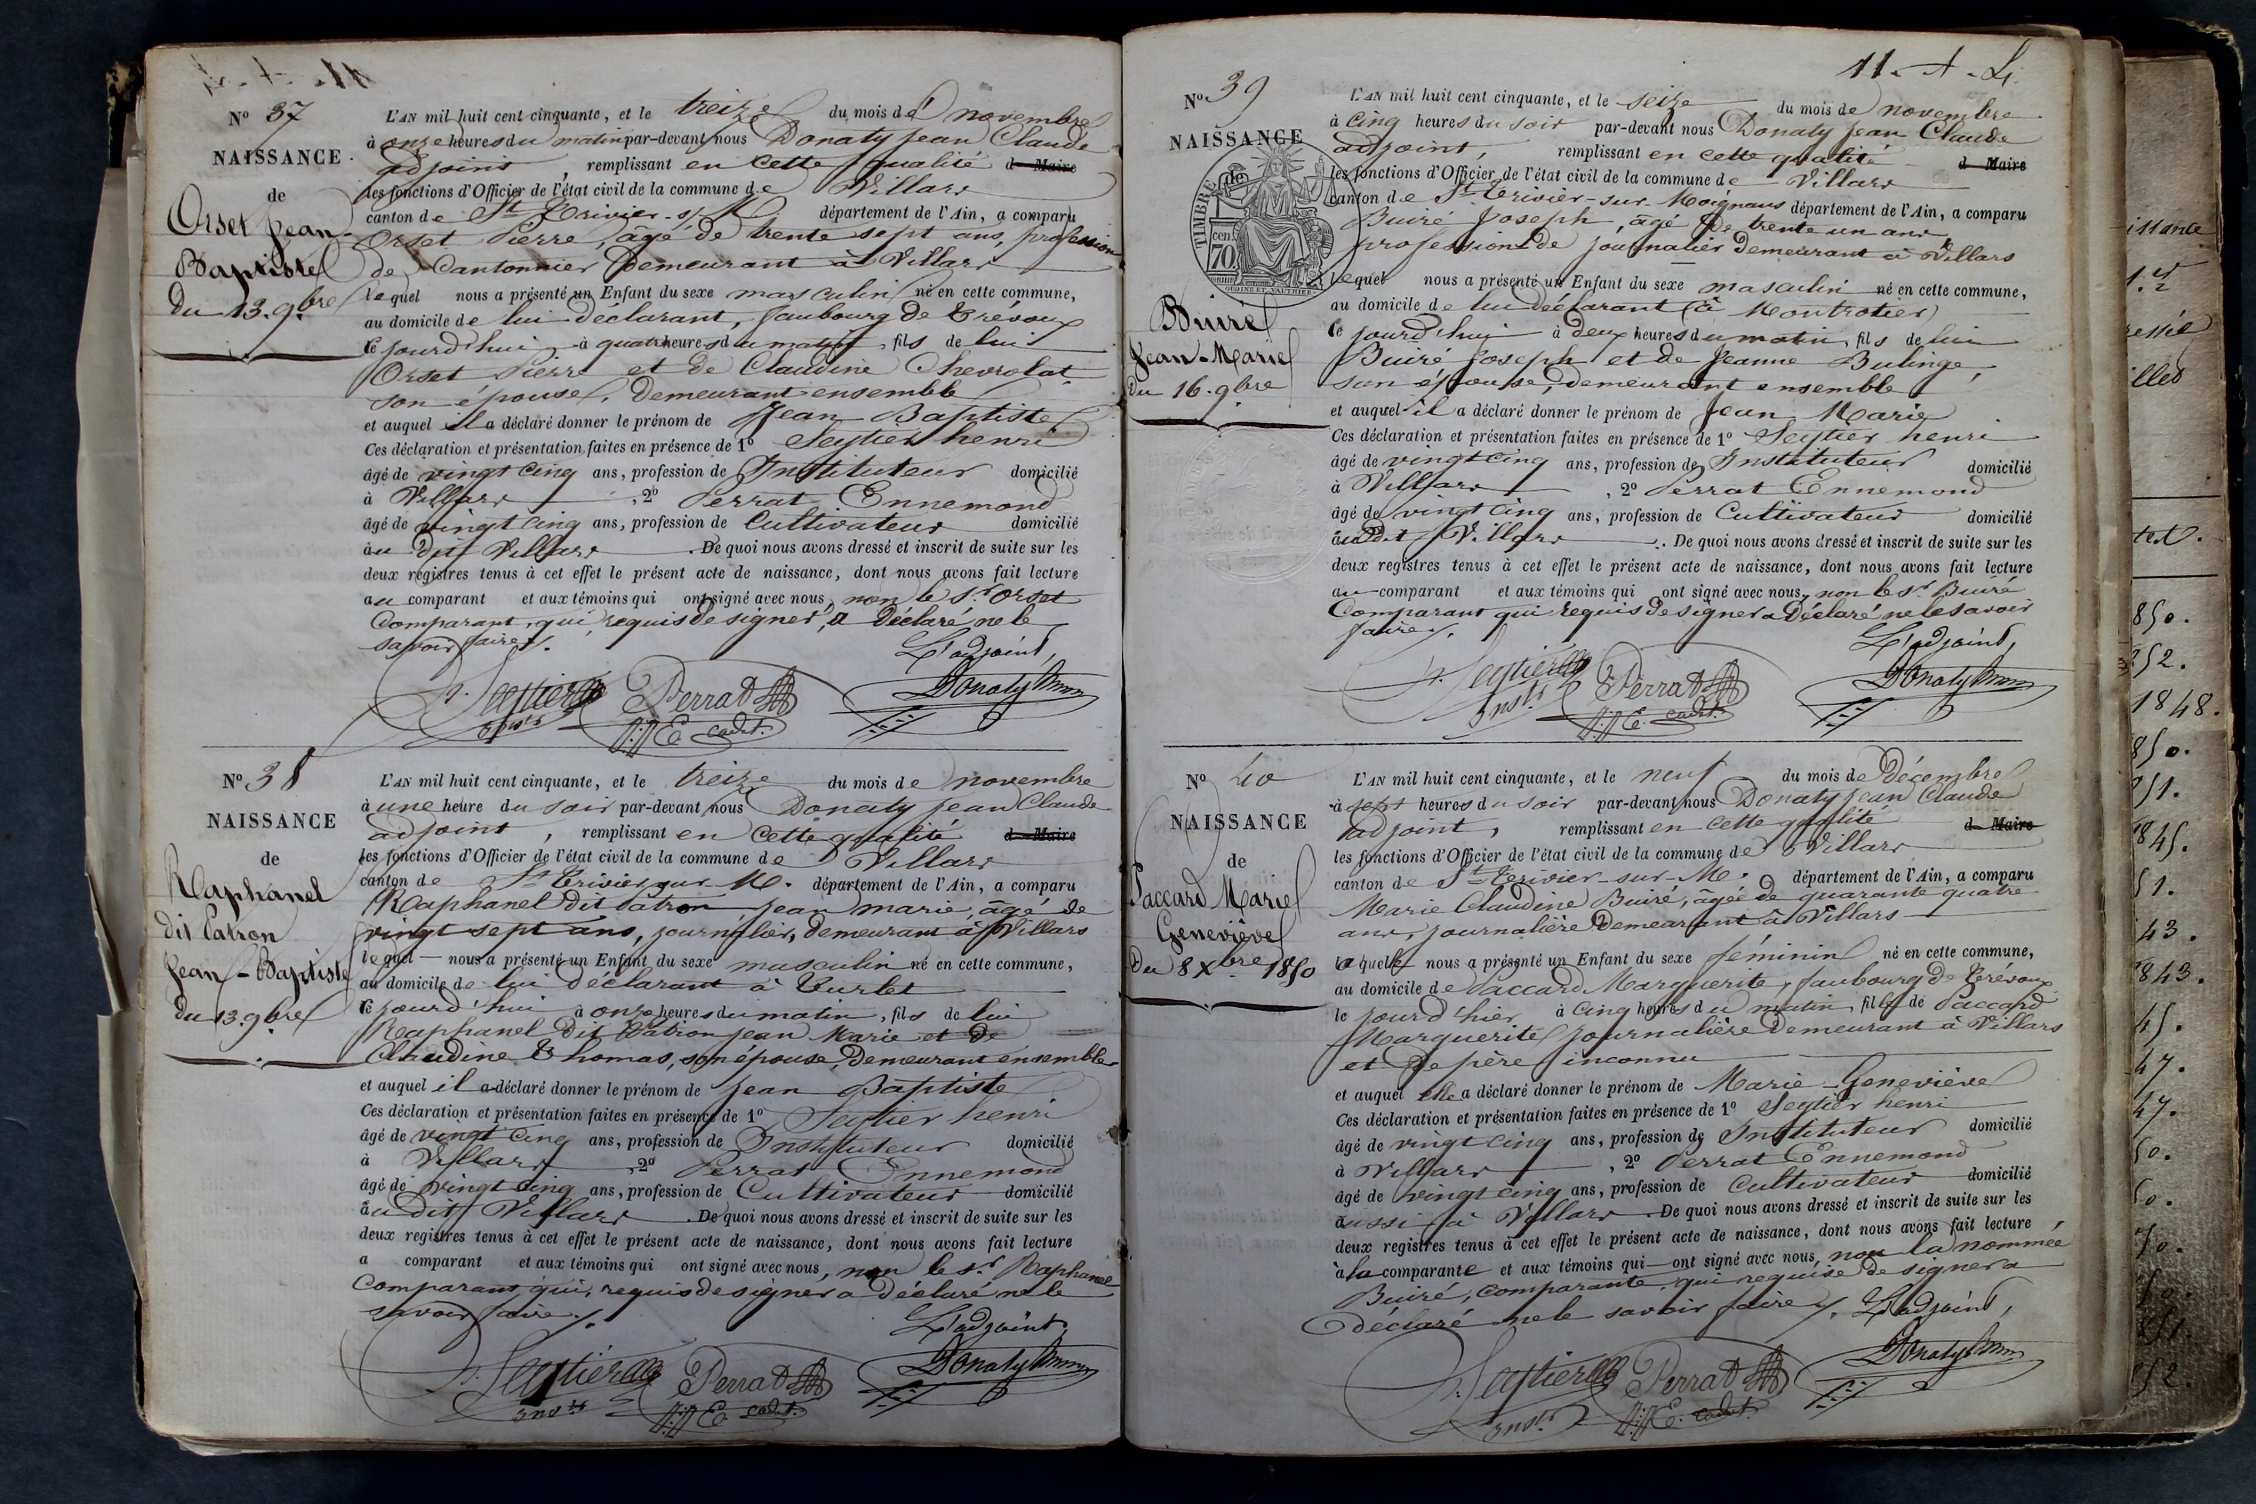 Nº 37
NAISSANCE
de
Orset Jean-
Baptiste
du 13. 9bre
L'AN mil huit cent cinquante, et le treize du mois de novembre
à onze heures du matin par-devant nous Donaty Jean Claude
adjoint, remplissant en cette qualité d Maire
les fonctions d'Officier de l'état civil de la commune de Villars
canton de St Trivier-s/M. département de l'Ain, a comparu
Orset Pierre, âgé de trente sept ans, profession
de Cantonnier demeurant à Villars
lequel nous a présenté un Enfant du sexe masculin né en cette commune,
au domicile de lui déclarant, faubourg de Trévoux
ce jourd'hui à quatre heures du matin, fils de lui
Orset Pierre et de Claudine Chevrolat
son épouse, demeurant ensemble
et auquel il a déclaré donner le prénom de Jean Baptiste
Ces déclaration et présentation faites en présence de 1º Seytier henri
âgé de vingt cinq ans, profession de Instituteur domicilié
à Villars, 2º Perrat Ennemond
âgé de vingt cinq ans, profession de Cultivateur domicilié
au dit Villars. De quoi nous avons dressé et inscrit de suite sur les
deux registres tenus à cet effet le présent acte de naissance, dont nous avons fait lecture
au comparant et aux témoins qui ont signé avec nous, non le sr Orset
Comparant, qui, requis de signer, a déclaré ne le
savoir faire.
L'adjoint,
h. Seytier Perrat Donaty
Instr E cadet.
Nº 38
NAISSANCE
de
Raphanel
dit Patron
Jean-Baptiste
du 13. 9bre
L'AN mil huit cent cinquante, et le treize du mois de novembre
à une heure du soir par-devant nous Donaty Jean Claude
adjoint, remplissant en cette qualité d Maire
les fonctions d'Officier de l'état civil de la commune de Villars
canton de St Trivier sur M. département de l'Ain, a comparu
Raphanel dit Patron Jean marie, âgé de
vingt sept ans, journalier, demeurant à Villars
lequel nous a présenté un Enfant du sexe masculin né en cette commune,
au domicile de lui déclarant à Turlet
ce jourd'hui à onze heures du matin, fils de lui
Raphanel dit Patron Jean Marie et de
Claudine Thomas, son épouse, demeurant ensemble
et auquel il a déclaré donner le prénom de Jean Baptiste
Ces déclaration et présentation faites en présence de 1º Seytier henri
âgé de vingt cinq ans, profession de Instituteur domicilié
à Villars, 2º Perrat Ennemond
âgé de vingt cinq ans, profession de Cultivateur domicilié
au dit Villars. De quoi nous avons dressé et inscrit de suite sur les
deux registres tenus à cet effet le présent acte de naissance, dont nous avons fait lecture
a comparant et aux témoins qui ont signé avec nous, non le sr Raphanel
Comparant, qui, requis de signer a déclaré ne le
savoir faire.
L'adjoint,
h. Seytier Perrat Donaty
Instr E cadet.
11.
Nº 39
NAISSANCE
de
TIMBRE
cen. 70
OUDINE ET VAUTHIER
Buiré
Jean-Marie
du 16. 9bre
L'AN mil huit cent cinquante, et le seize du mois de novembre
à cinq heures du soir par-devant nous Donaty Jean Claude
adjoint, remplissant en cette qualité d Maire
les fonctions d'Officier de l'état civil de la commune de Villars
canton de St Trivier-sur-Moignans département de l'Ain, a comparu
Buiré Joseph, âgé de trente un ans
profession de journalier demeurant à Villars
lequel nous a présenté un Enfant du sexe masculin né en cette commune,
au domicile de lui déclarant (à Montrotier)
ce jourd'hui à deux heures du matin, fils de lui
Buiré Joseph et de Jeanne Bulinge,
son épouse, demeurant ensemble
et auquel il a déclaré donner le prénom de Jean Marie
Ces déclaration et présentation faites en présence de 1º Seytier henri
âgé de vingt cinq ans, profession de Instituteur domicilié
à Villars, 2º Perrat Ennemond
âgé de vingt cinq ans, profession de Cultivateur domicilié
audit Villars. De quoi nous avons dressé et inscrit de suite sur les
deux registres tenus à cet effet le présent acte de naissance, dont nous avons fait lecture
au comparant et aux témoins qui ont signé avec nous, non le sr Buiré
Comparant qui requis de signer a Déclaré ne le savoir
faire.
L'adjoint,
h. Seytier Perrat Donaty
Instr E. cadet.
Nº 40
NAISSANCE
de
Paccard Marie
Geneviève
du 8 Xbre 1850
L'AN mil huit cent cinquante, et le neuf du mois de Décembre
à sept heures du soir par-devant nous Donaty Jean Claude
adjoint, remplissant en cette qualité d Maire
les fonctions d'Officier de l'état civil de la commune de Villars
canton de St Trivier-sur-M. département de l'Ain, a comparu
Marie Claudine Buiré, âgée de quarante quatre
ans, journalière demeurant à Villars
laquelle nous a présenté un Enfant du sexe féminin né en cette commune,
au domicile de Paccard Marguerite, faubourg de Trévoux
le jourd'hier à cinq heures du matin, fille de Paccard
Marguerite journalière demeurant à Villars
et de père inconnu
et auquel elle a déclaré donner le prénom de Marie-Geneviève
Ces déclaration et présentation faites en présence de 1º Seytier henri
âgé de vingt cinq ans, profession de Instituteur domicilié
à Villars, 2º Perrat Ennemond
âgé de vingt cinq ans, profession de Cultivateur domicilié
aussi à Villars. De quoi nous avons dressé et inscrit de suite sur les
deux registres tenus à cet effet le présent acte de naissance, dont nous avons fait lecture
à la comparante et aux témoins qui ont signé avec nous, non la nommée
Buiré, comparante, qui requise de signer a
déclaré ne le savoir faire. L'adjoint,
h. Seytier Perrat Donaty
Instr E. cadet.
1848.